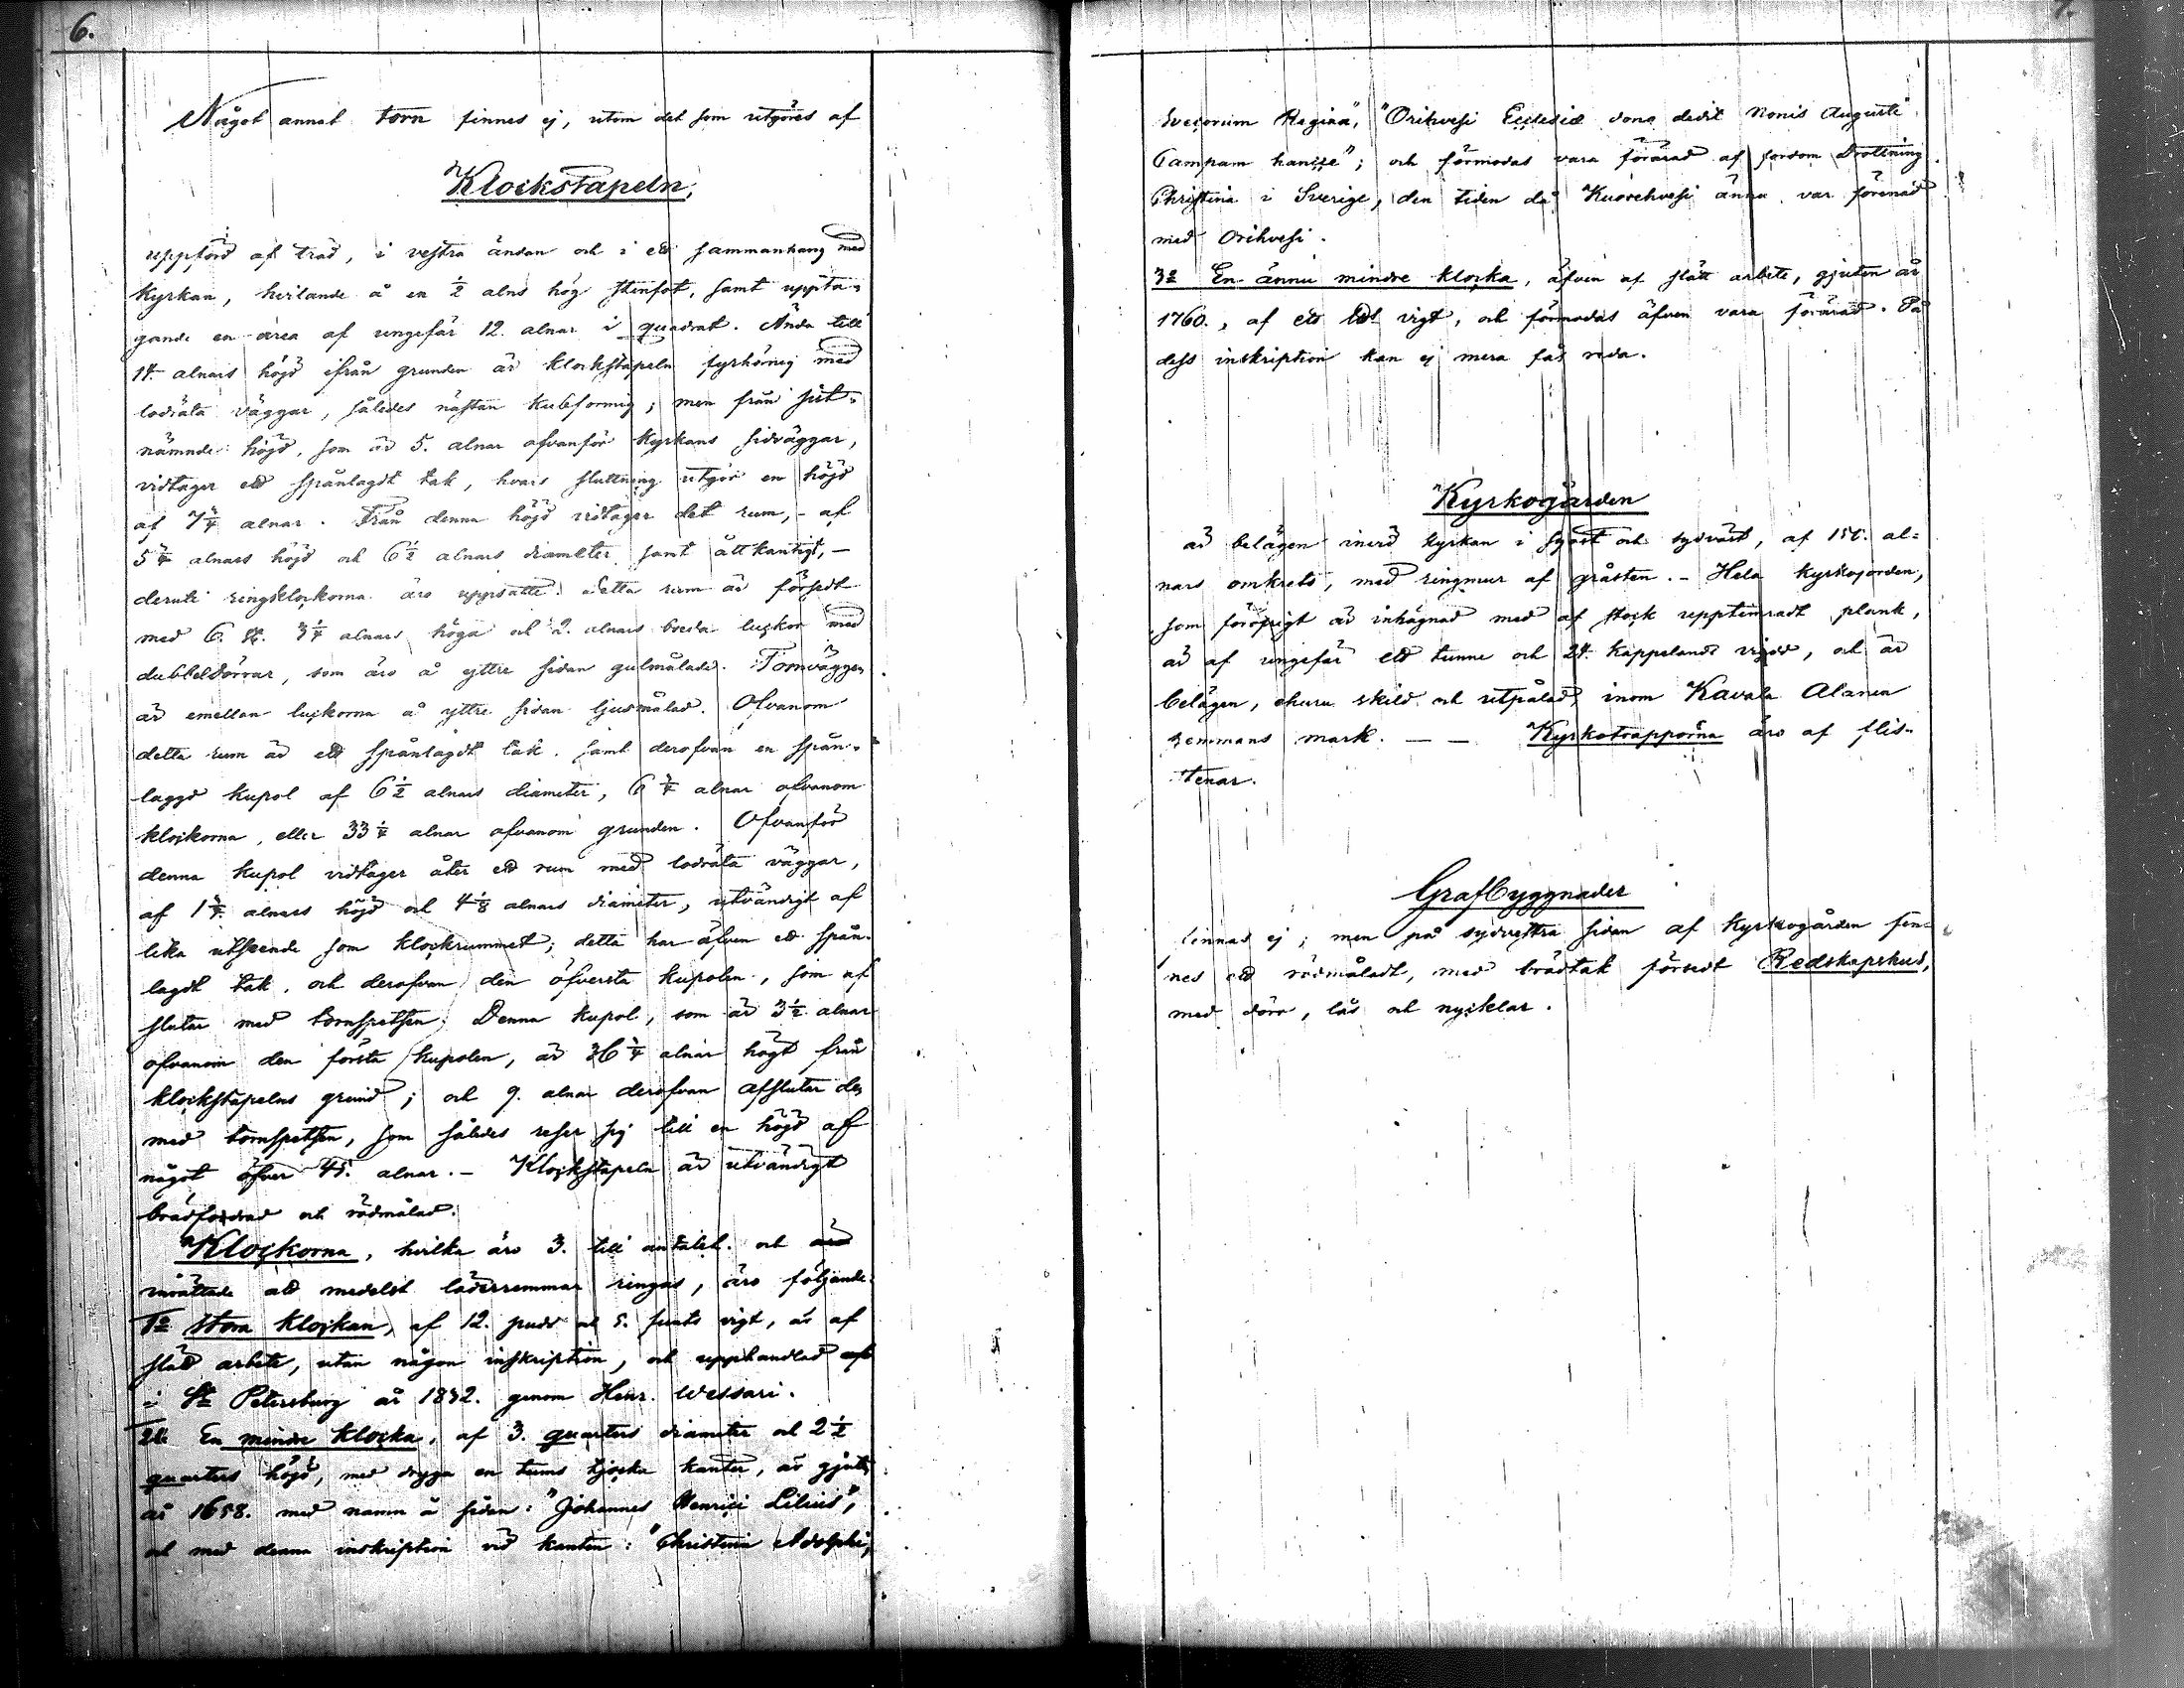 6.
Något annat torn finnes ej, utom det som utgöres af
Klockstapeln,
uppförd af träd, i vestra ändan och i ett sammanhang med
kyrkan, hvilande å en ½ alns hög stenfot, samt uppta-
gande en area af ungefär 12. alnar i quadrat. Ända till
14. alnars höjd ifrån grunden är klockstapeln fyrhörnig med
lodräta väggar, således nästan kubformig; men från sist-
nämnde höjd, som är 5. alnar ofvanför kyrkans sidväggar,
vidtager ett spånlagdt tak, hvars sluttning utgör en höjd
af 7¼ alnar. Från denna höjd vidtager det rum, - af
5¼ alnars höjd och 6½ alnars diameter samt åttkantigt, -
deruti ringklockorna äro uppsatte. Detta rum är försedt
med 6. st. 3¼ alnars höga och 2. alnars breda luckor med
dubbeldörrar, som äro å yttre sidan gulmålade. Tornväggen
är emellan luckorna å yttre sidan ljusmålad. Ofvanom
detta rum är ett spånlagdt tak, samt derofvan en spån-
lagd kupol af 6½ alnars diameter, 6¼ alnar ofvanom
klockorna, eller 33¼ alnar ofvanom grunden. Ofvanför
denna kupol vidtager åter ett rum med lodräta väggar,
af 1¾ alnars höjd och 4⅛ alnars diameter, utvändigt af
lika utseende som klockrummet; detta har äfven ett spån-
lagdt tak, och derofvan den öfversta kupolen, som af
slutar med tornspetsen. Denna kupol, som är 3½ alnar
ofvanom den första kupolen, är 36¾ alnar högt från
klockstapelns grund; och 9. alnar derofvan afslutar den
med tornspetsen, som således reser sig till en höjd af
något öfver 45. alnar. - Klockstapeln är utvändigt
brädfodrad och rödmålad.
Klockorna, hvilka äro 3. till antalet och äro
inrättade att medelst läderremmar ringas, äro följande:
1º Stora klockan, af 12. pud och 5. funts vigt, är af
slät arbete, utan någon inskription, och upphandlad af
i St Petersburg år 1832. genom Henr. Wessari.
2º En mindre klocka, af 3. quarters diameter och 2½
quarters höjd, med dryga en tums tjocka kanter, är gjuten
år 1658. med namn å sidan: "Johannes Henrici Lilius",
och med denna inskription vid kanten: "Christina Adolphi,
7.
Svecorum Regina", "Orihvesi Ecclesiæ dona dedit Nonis Augusti
Campam hancce"; och förmodas vara förärad af fordom Drottning
Christina i Sverige, den tiden då Kuorehvesi ännu var förenad
med Orihvesi.
3º En ännu mindre klocka, äfven af slätt arbete, gjuten år
1760., af ett Lds vigt, och förmodas äfven vara förärad. På
dess inskription kan ej mera fås reda.
Kyrkogården
är belägen invid kyrkan i sydost och sydvest, af 150. al-
nars omkrets, med ringmur af gråsten. - Hela kyrkojorden,
som föröfrigt är inhägnad med af stock upptimradt plank,
är af ungefär ett tunne och 24. kappelands vidd, och är
belägen, ehuru skild och utpålad, inom Kavala Alanen
hemmans mark. - - Kyrkotrapporna äro af flis-
stenar.
Grafbyggnader
finnas ej; men på sydvestra sidan af kyrkogården fin-
nes ett rödmåladt, med brädtak försedt Redskapshus,
med dörr, lås och nycklar.